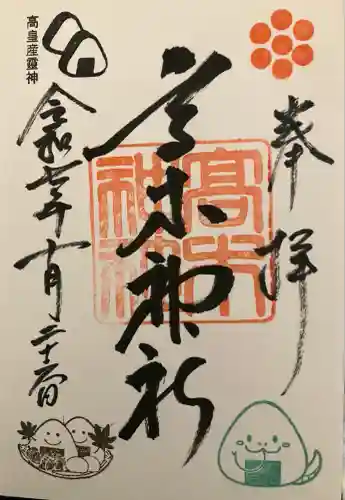 奉拝
高木神社
高木
神社
高皇産靈神
令和七年十月二十日